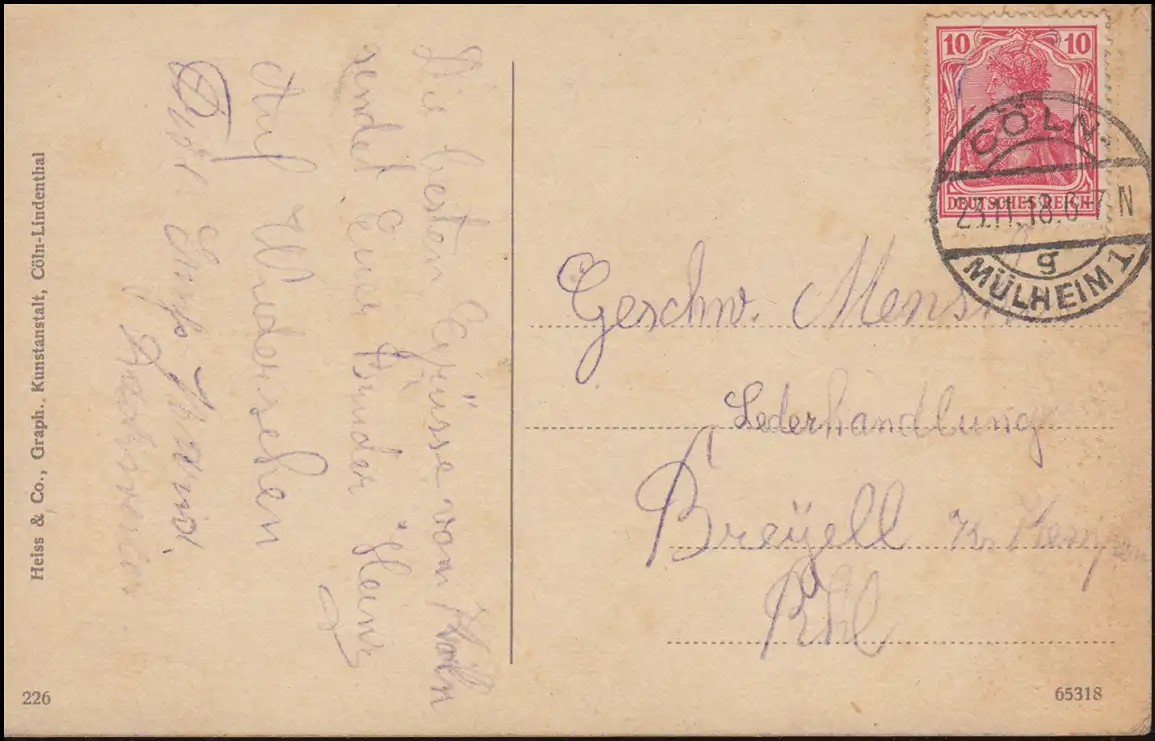 Die besten Grüsse von Köln
sendet Euer Bruder Heinz
Auf Wiedersehen
Heiss & Co., Graph. Kunstanstalt, Cöln-Lindenthal
226
10 10
DEUTSCHES REICH
CÖLN
23.11.18.6-7 N
g
MÜLHEIM 1
Geschw.
Lederhandlung
Breyell Kr. Kempen
Rhl
65318